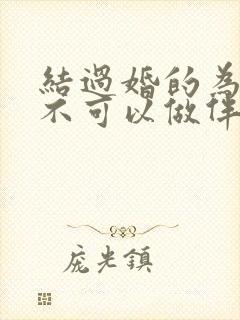 結過婚的為
不可以做伴
龐光鎮